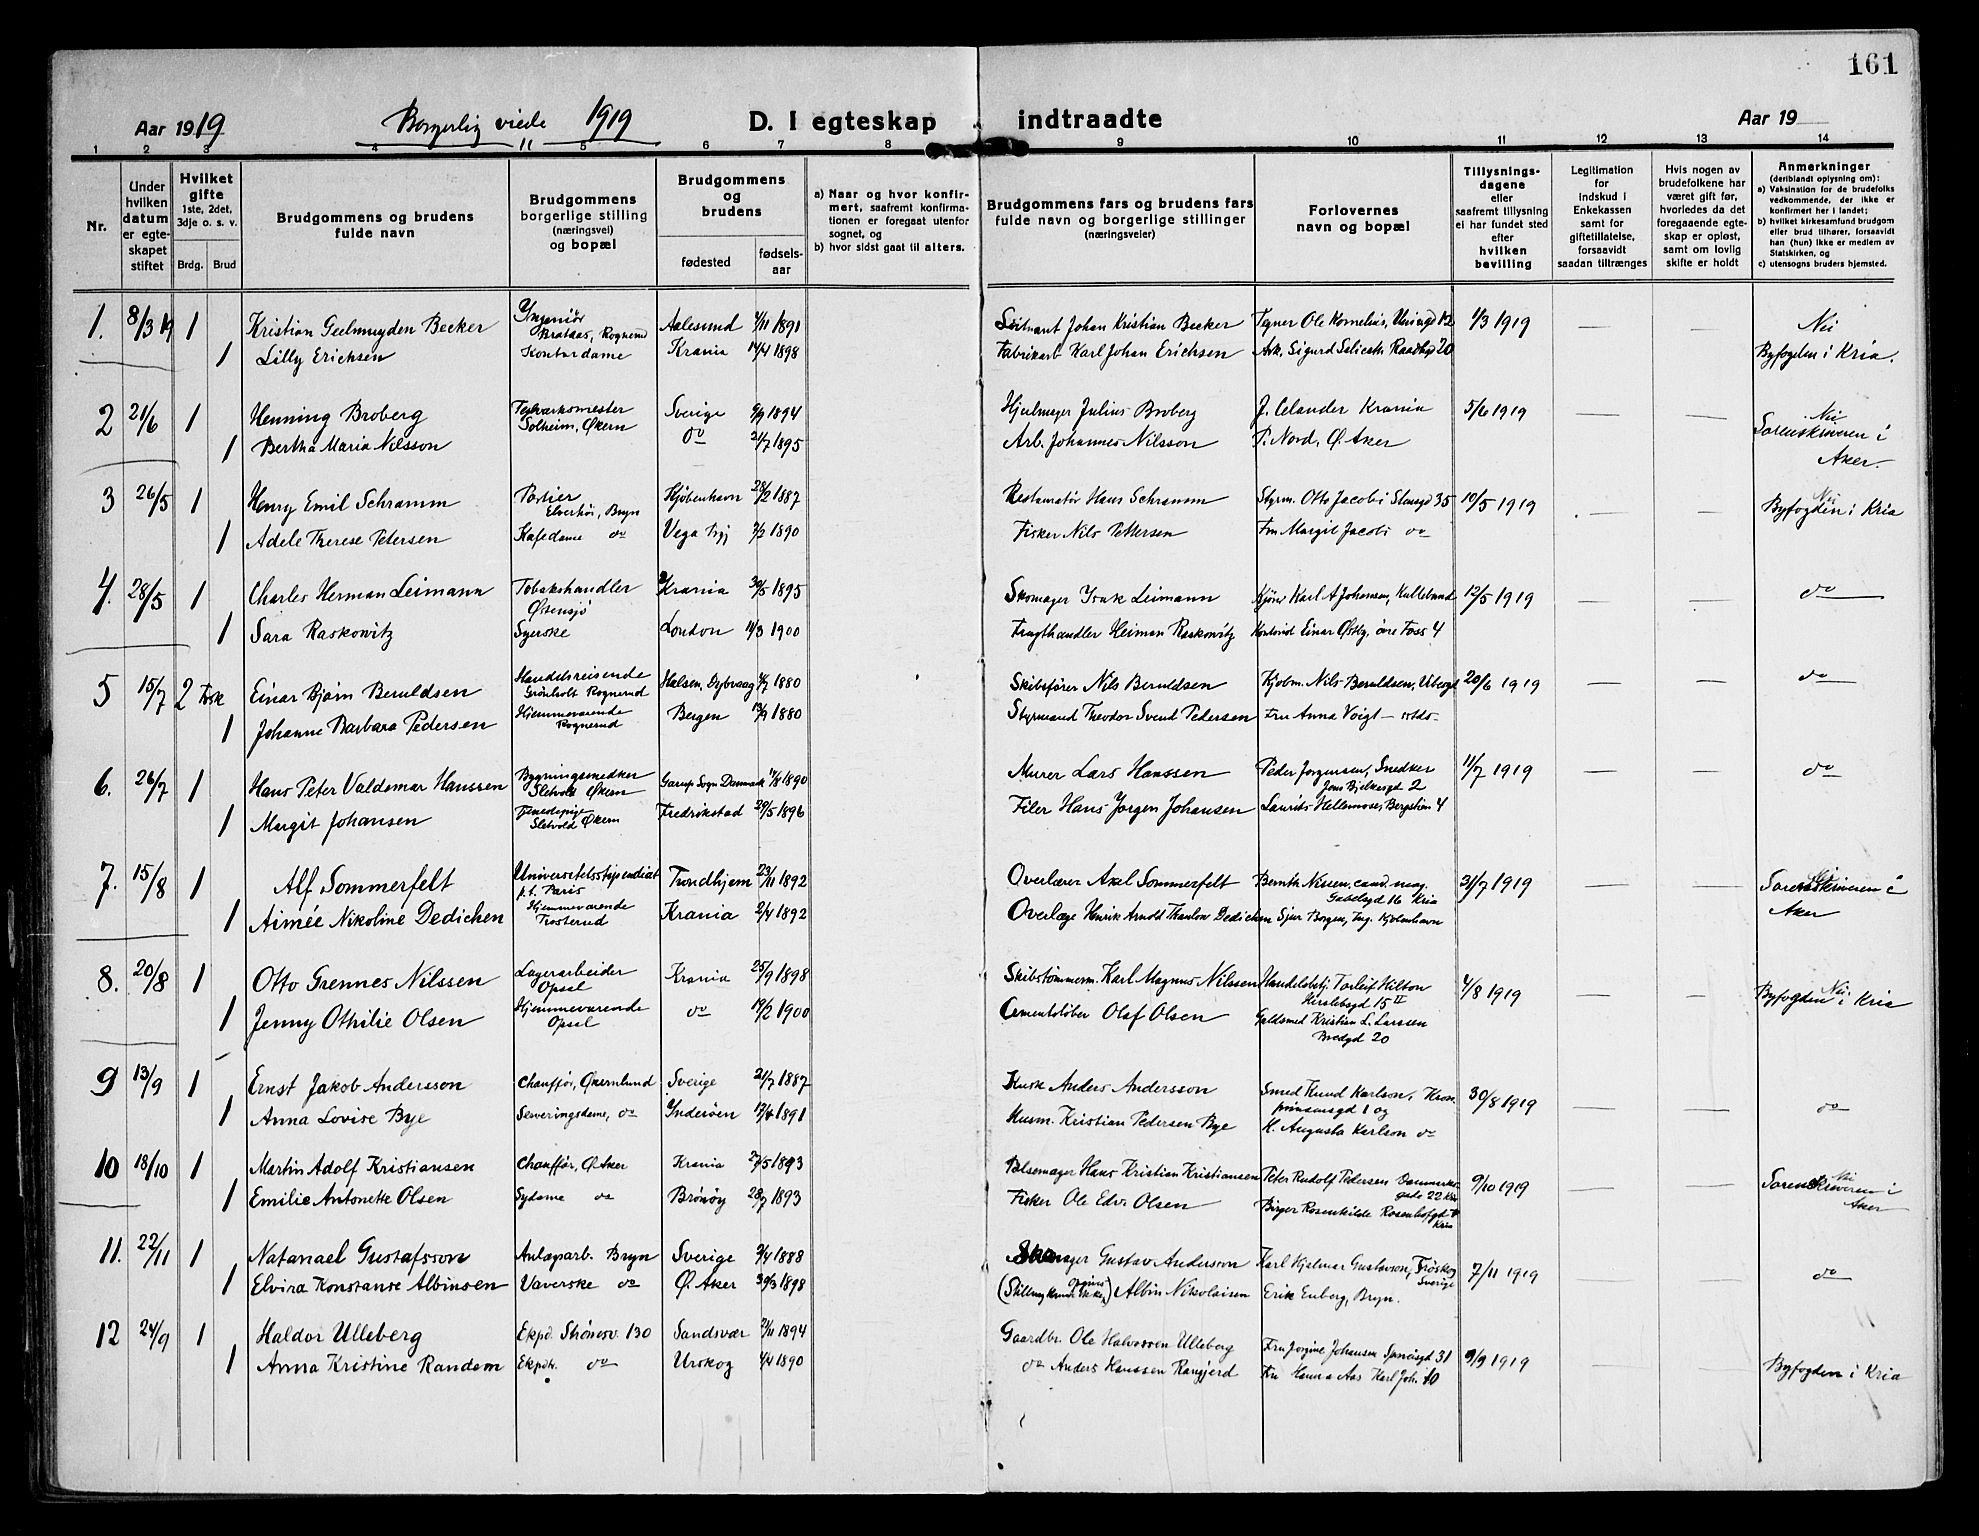 161
Aar 1919 Borgerlig viede 1919 D. I egteskap indtraadte Aar 19
1 2 3 4 5 6 7 8 9 10 11 12 13 14
Nr.
Under hvilken datum er egteskapet stiftet
Hvilket gifte 1ste, 2det, 3dje o. s. v.
Brdg. Brud
Brudgommens og brudens fulde navn
Brudgommens borgerlige stilling (næringsvei) og bopæl
Brudgommens og brudens
fødested fødselsaar
a) Naar og hvor konfirmert, saafremt konfirmationen er foregaat utenfor sognet, og
b) hvor sidst gaat til alters.
Brudgommens fars og brudens fars fulde navn og borgerlige stillinger (næringsveier)
Forlovernes navn og bopæl
Tillysningsdagene eller saafremt tillysning ei har fundet sted efter hvilken bevilling
Legitimation for indskud i Enkekassen samt for giftetillatelse, forsaavidt saadan tiltrænges
Hvis nogen av brudefolkene har været gift før, hvorledes da det foregaaende egteskap er opløst, samt om lovlig skifte er holdt
Anmerkninger (deriblandt oplysning om): a) Vaksination for de brudefolks vedkommende, der ikke er konfirmert her i landet; b) hvilket kirkesamfund brudgom eller brud tilhører, forsaavidt han (hun) ikke er medlem av Statskirken, og c) utensogns bruders hjemsted.
1. 8/3 19 1 Kristian Geelmuyden Becker Ingeniør Brataas, Rognerud Aalesund 1/11 1891 Løitnant Johan Kristian Becker Tegner Ole Kornelius, 1/3 1919 — — Nei
1 Lilly Erichsen Kontordame Krania 14/4 1898 Fabrikarb. Karl Johan Erichsen Ark. Sigurd Selicath 20 Byfogden i Kria.
2 21/6 1 Henning Broberg Teglverksmester Solheim, Økern Sverige 9/9 1894 Hjulmager Julius Broberg J. Celander Krania 5/6 1919 — — Nei
1 Bertha Maria Nilsson do 21/7 1895 Arb. Johannes Nilsson P. Nord, Ø. Aker Sorenskriveren i Aker.
3 26/5 1 Henry Emil Schramm Portier Elverhøi, Bryn Kjøbenhavn 28/2 1887 Restauratør Hans Schramm Styrm. Otto Jacobi Stensgd 35 10/5 1919 — — Nei Byfogden i Kria
1 Adele Therese Petersen Kafedame do Vega 7/2 1890 Fisker Nils Pettersen Fru Margit Jacobi do
4. 28/5 1 Charles Herman Leimann Tobakshandler Østensjø Krania 30/5 1895 Skomager Isak Leimann Karl A Johansen, 12/5 1919 — — do
1 Sara Raskowitz Syerske London 14/3 1900 Frugthandler Heiman Raskowitz Einar Østby, Foss 4
5 15/7 2 Einar Bjørn Beruldsen Handelsreisende Grønholt Rognerud Halsen, Dybvaag 4/7 1880 Skibsfører Nils Beruldsen Kjøbm. Nils Beruldsen, 20/6 1919 — — do
1 Johanne Barbara Pedersen Hjemmeværende Rognerud Bergen 13/9 1880 Styrmand Theodor Svend Pedersen Fru Anna Voigt
6. 26/7 1 Hans Peter Valdemar Hanssen Bygningssnedker Sletvold Økern Sogn Danmark 17/4 1890 Murer Lars Hanssen Peder Jørgensen, Snedker Jens Bjelkesgd 2 11/7 1919 — — do
1 Margit Johansen Tjenestepige Sletvold Økern Fredrikstad 29/5 1896 Filer Hans Jørgen Johansen Laurits Hellemoses, Bergstien 4
7. 15/8 1 Alf Sommerfelt Universitetsstipendiat p.t. Paris Trondhjem 23/11 1892 Overlærer Axel Sommerfelt Bernth Nissen, cand. mag. Gabelsgd 16 Kria 31/7 1919 — — Nei Sorenskriveren i Aker
1 Aimée Nikoline Dedichen Hjemmeværende Trosterud Krania 2/4 1892 Overlæge Henrik Arnold Thaulow Dedichen Sjur Borgen, Ing. Kjøbenhavn
8. 20/8 1 Otto Grennes Nilssen Lagerarbeider Opsal Krania 25/9 1898 Skibstømmerm. Karl Magnus Nilssen Handelsbetj. Torleif Hilton Herslebsgd 15 II 4/8 1919 — — Nei Byfogden i Kria
1 Jenny Othilie Olsen Hjemmeværende Opsal do 19/2 1900 Cementstøber Olaf Olsen Guldsmed Kristian L. Larssen Bredgd 20
9 13/9 1 Ernst Jakob Andersson Chauffør, Økernlund Sverige 21/7 1887 Kusk Anders Andersson Smed Knud Karlson, Kronprinsensgd 1 og 30/8 1919 — — do
1 Anna Lovise Bye Serveringsdame, do Ynderøen 17/4 1891 Husm. Kristian Pedersen Bye H. Augusta Karlson do
10 18/10 1 Martin Adolf Kristiansen Chauffør, Ø. Aker Krania 27/5 1893 Pølsemager Hans Kristian Kristiansen Peter Rudolf Pedersen Danmarksgade 22 Kria 9/10 1919 — — Nei Sorenskriveren i Aker
1 Emilie Antonette Olsen Sydame do Brønøy 28/7 1893 Fisker Ole Edv. Olsen Birger Rosenkilde Rosenhofgd Kria
11. 22/11 1 Natanael Gustafsson Anlægsarb. Bryn Sverige 2/4 1888 Skomager Gustav Andersson Karl Hjalmar Gustavson, Sverige 7/11 1919 do
1 Elvira Konstanse Albinsen Væverske do Ø. Aker 30/3 1898 (Stilling kunde ikke opgives) Albin Nikolaisen Erik Enberg, Bryn.
12 24/9 1 Haldor Ulleberg Ekpd. 130 Sandsvær 21/11 1894 Gaardbr. Ole Halvorsen Ulleberg Fru Jørgine Johansen 31 9/9 1919 — — Byfogden i Kria
1 Anna Kristine Randem Ekpdr. do Urskog 4/4 1890 do Anders Hanssen Fru Hanna Aas Karl Joh. 10